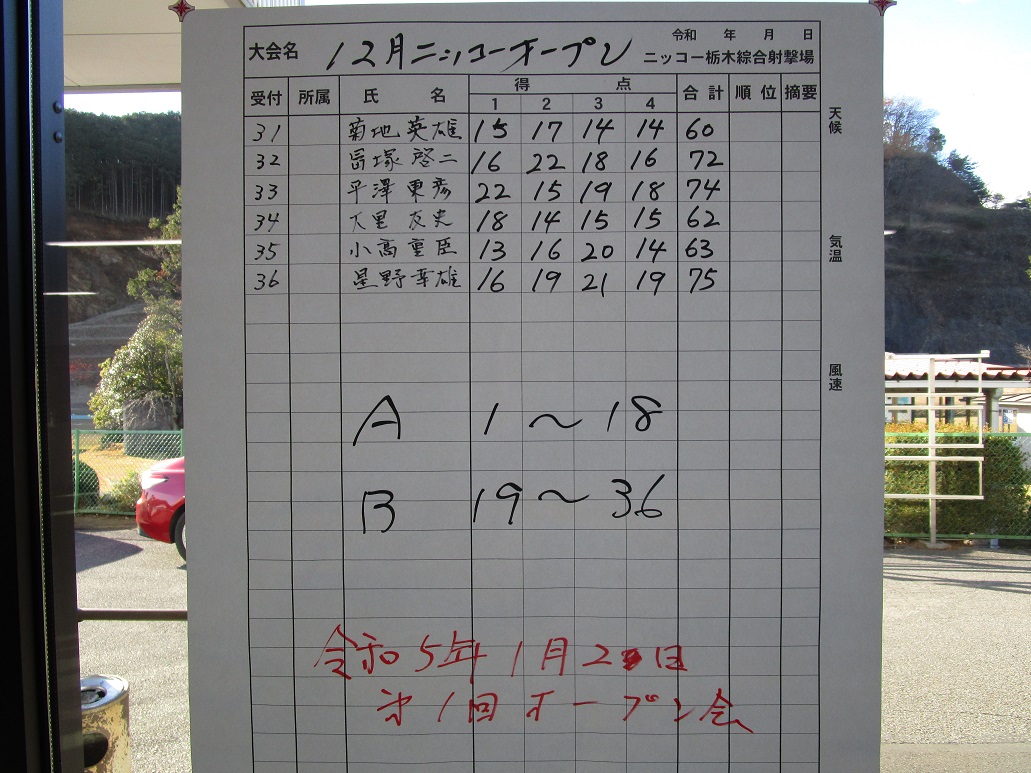 令和 年 月 日
大会名 12月ニッコーオープン ニッコー栃木綜合射撃場
受付 所属 氏名 得点 合計 順位 摘要
1 2 3 4
31 菊地 英雄 15 17 14 14 60
32 冨塚 啓二 16 22 18 16 72
33 平澤 東彦 22 15 19 18 74
34 大里 友史 18 14 15 15 62
35 小高 重臣 13 16 20 14 63
36 星野 幸雄 16 19 21 19 75
天候
気温
風速
A 1〜18
B 19〜36
令和5年1月2日
第1回オープン会